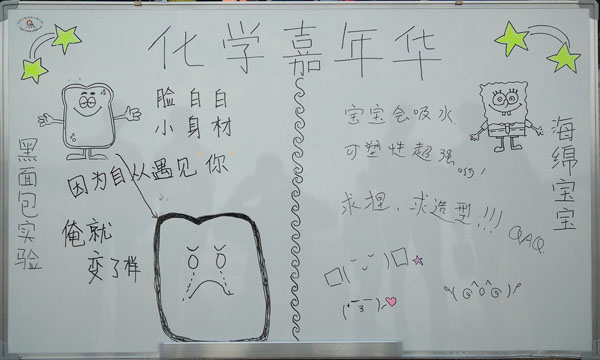 化学嘉年华
黑面包实验
脸白白
小身材
因为自从遇见你
俺就
变了样
宝宝会吸水
可塑性超强
求捏、求造型!!!
QAQ
海绵宝宝